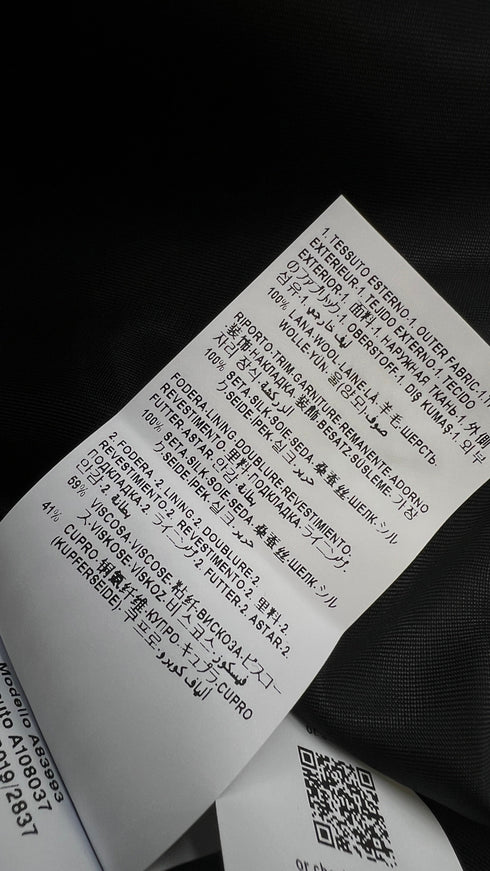 1. TESSUTO ESTERNO-1. OUTER FABRIC
EXTERIEUR-1. TEJIDO EXTERNO-1. TECIDO
EXTERIOR-1. 面料-1. НАРУЖНАЯ ТКАНЬ-1. 外側
のファブリック-1. OBERSTOFF-1. DIŞ KUMAŞ-1. 외부
섬유-1.
100% LANA-WOOL-LAINE-LÃ-羊毛-ШЕРСТЬ-
WOLLE-YÜN-울(양모)-صوف
RIPORTO-TRIM-GARNITURE-REMANENTE-ADORNO
装飾-НАКЛАДКА-装飾-BESATZ-SÜSLEME-가장
자리 장식-الزركشة
100% SETA-SILK-SOIE-SEDA-桑蚕丝-ШЕЛК-シル
ク-SEIDE-İPEK-실크-حرير
FODERA-LINING-DOUBLURE-REVESTIMIENTO-
REVESTIMENTO-里料-ПОДКЛАДКА-ライニング-
FUTTER-ASTAR-안감-بطانة
100% SETA-SILK-SOIE-SEDA-桑蚕丝-ШЕЛК-シル
ク-SEIDE-İPEK-실크-حرير
2. FODERA-2. LINING-2. DOUBLURE-2.
REVESTIMIENTO-2. REVESTIMENTO-2. 里料-2.
ПОДКЛАДКА-2. ライニング-2. FUTTER-2. ASTAR-2.
안감-2. بطانة
59% VISCOSA-VISCOSE-粘纤-ВИСКОЗА-ビスコー
ス-VISKOSE-VİSKOZ-비스코스-فيسكوز
41% CUPRO-铜氨纤维-КУПРО-キュプラ-CUPRO
(KUPFERSEIDE)-쿠프로-ألياف كوبرو
Modello A83993
A108037
2019/2837